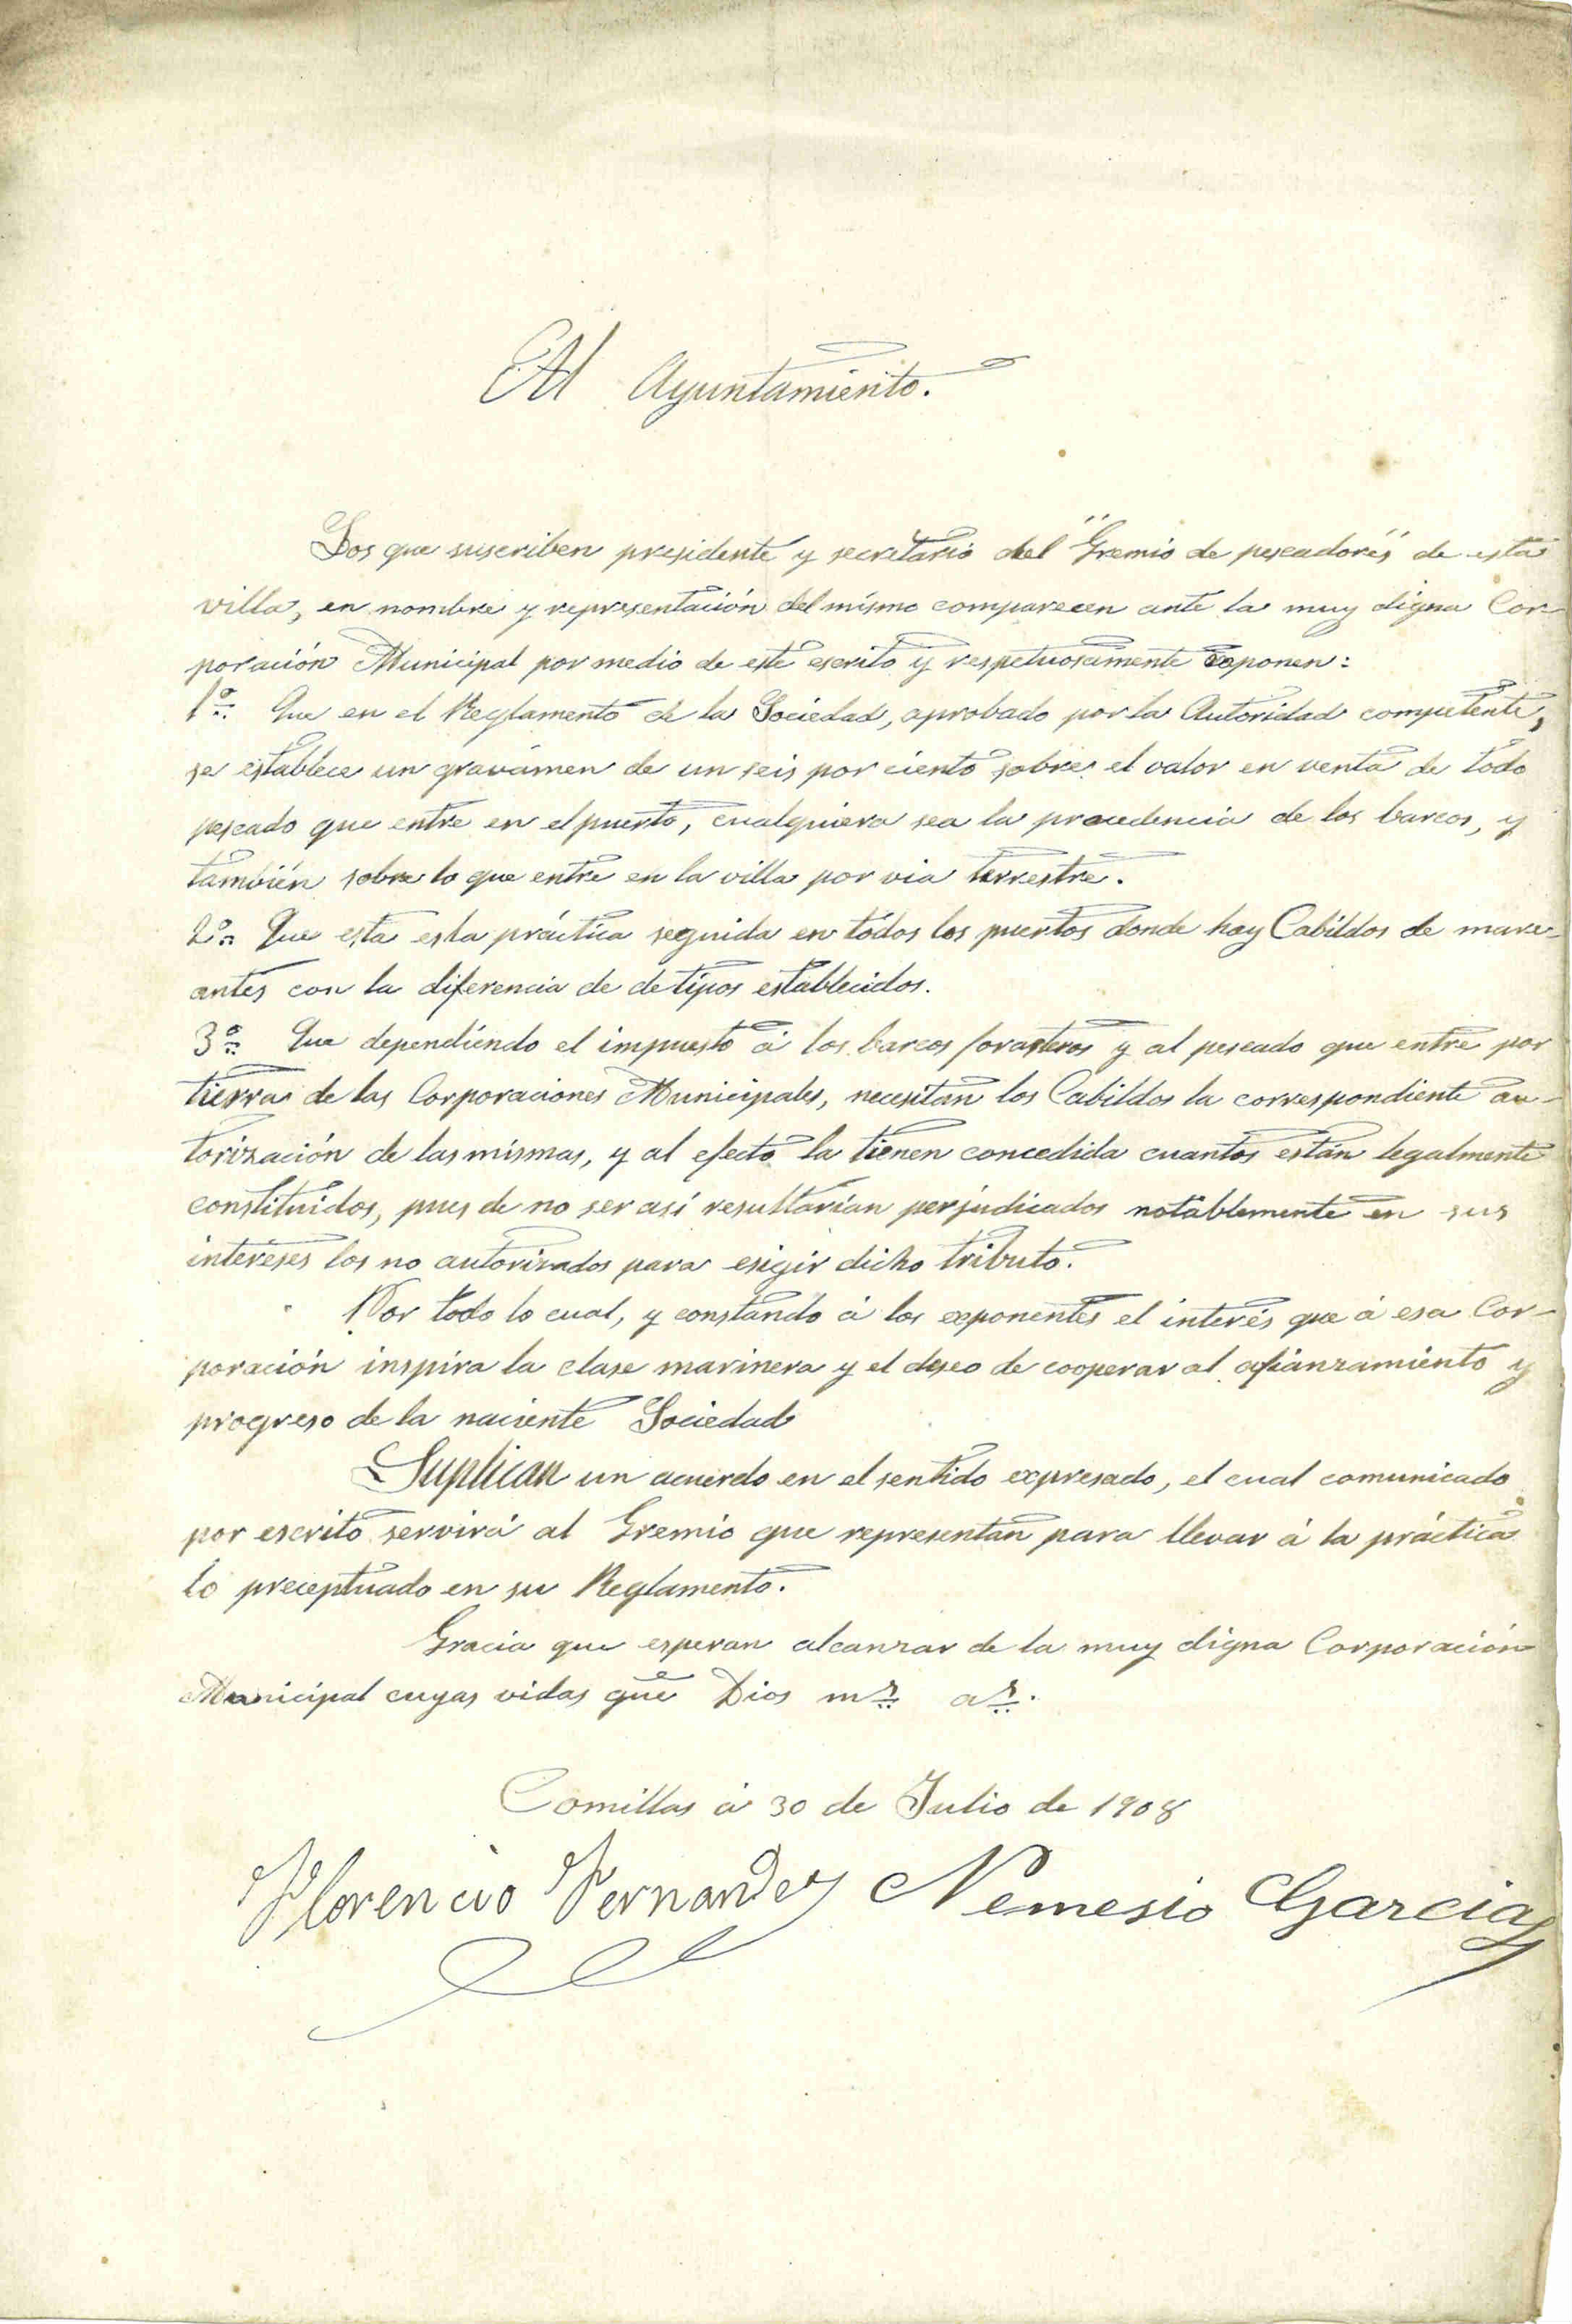 Al Ayuntamiento.
Los que suscriben presidente y secretario del "Gremio de pescadores" de esta
villa, en nombre y representación del mismo comparecen ante la muy digna Cor-
poración Municipal por medio de este escrito y respetuosamente exponen:
1º Que en el Reglamento de la Sociedad, aprobado por la Autoridad competente,
se establece un gravámen de un seis por ciento sobre el valor en venta de todo
pescado que entre en el puerto, cualquiera sea la procedencia de los barcos, y
también sobre lo que entre en la villa por via terrestre.
2º Que esta es la práctica seguida en todos los puertos donde hay Cabildos de mare-
antes con la diferencia de de tipos establecidos.
3º Que dependiendo el impuesto á los barcos forasteros y al pescado que entre por
tierra de las Corporaciones Municipales, necesitan los Cabildos la correspondiente au-
torización de las mismas, y al efecto la tienen concedida cuantos están legalmente
constituidos, pues de no ser así resultarían perjudicados notablemente en sus
intereses los no autorizados para esigir dicho tributo.
Por todo lo cual, y constando á los exponentes el interés que á esa Cor-
poración inspira la clase marinera y el deseo de cooperar al afianzamiento y
progreso de la naciente Sociedad
Suplican un acuerdo en el sentido expresado, el cual comunicado
por escrito servirá al Gremio que representan para llevar á la práctica
lo preceptuado en su Reglamento.
Gracia que esperan alcanzar de la muy digna Corporación
Municipal cuyas vidas gue Dios ms as.
Comillas á 30 de Julio de 1908
Florencio Fernandez Nemesio Garcia